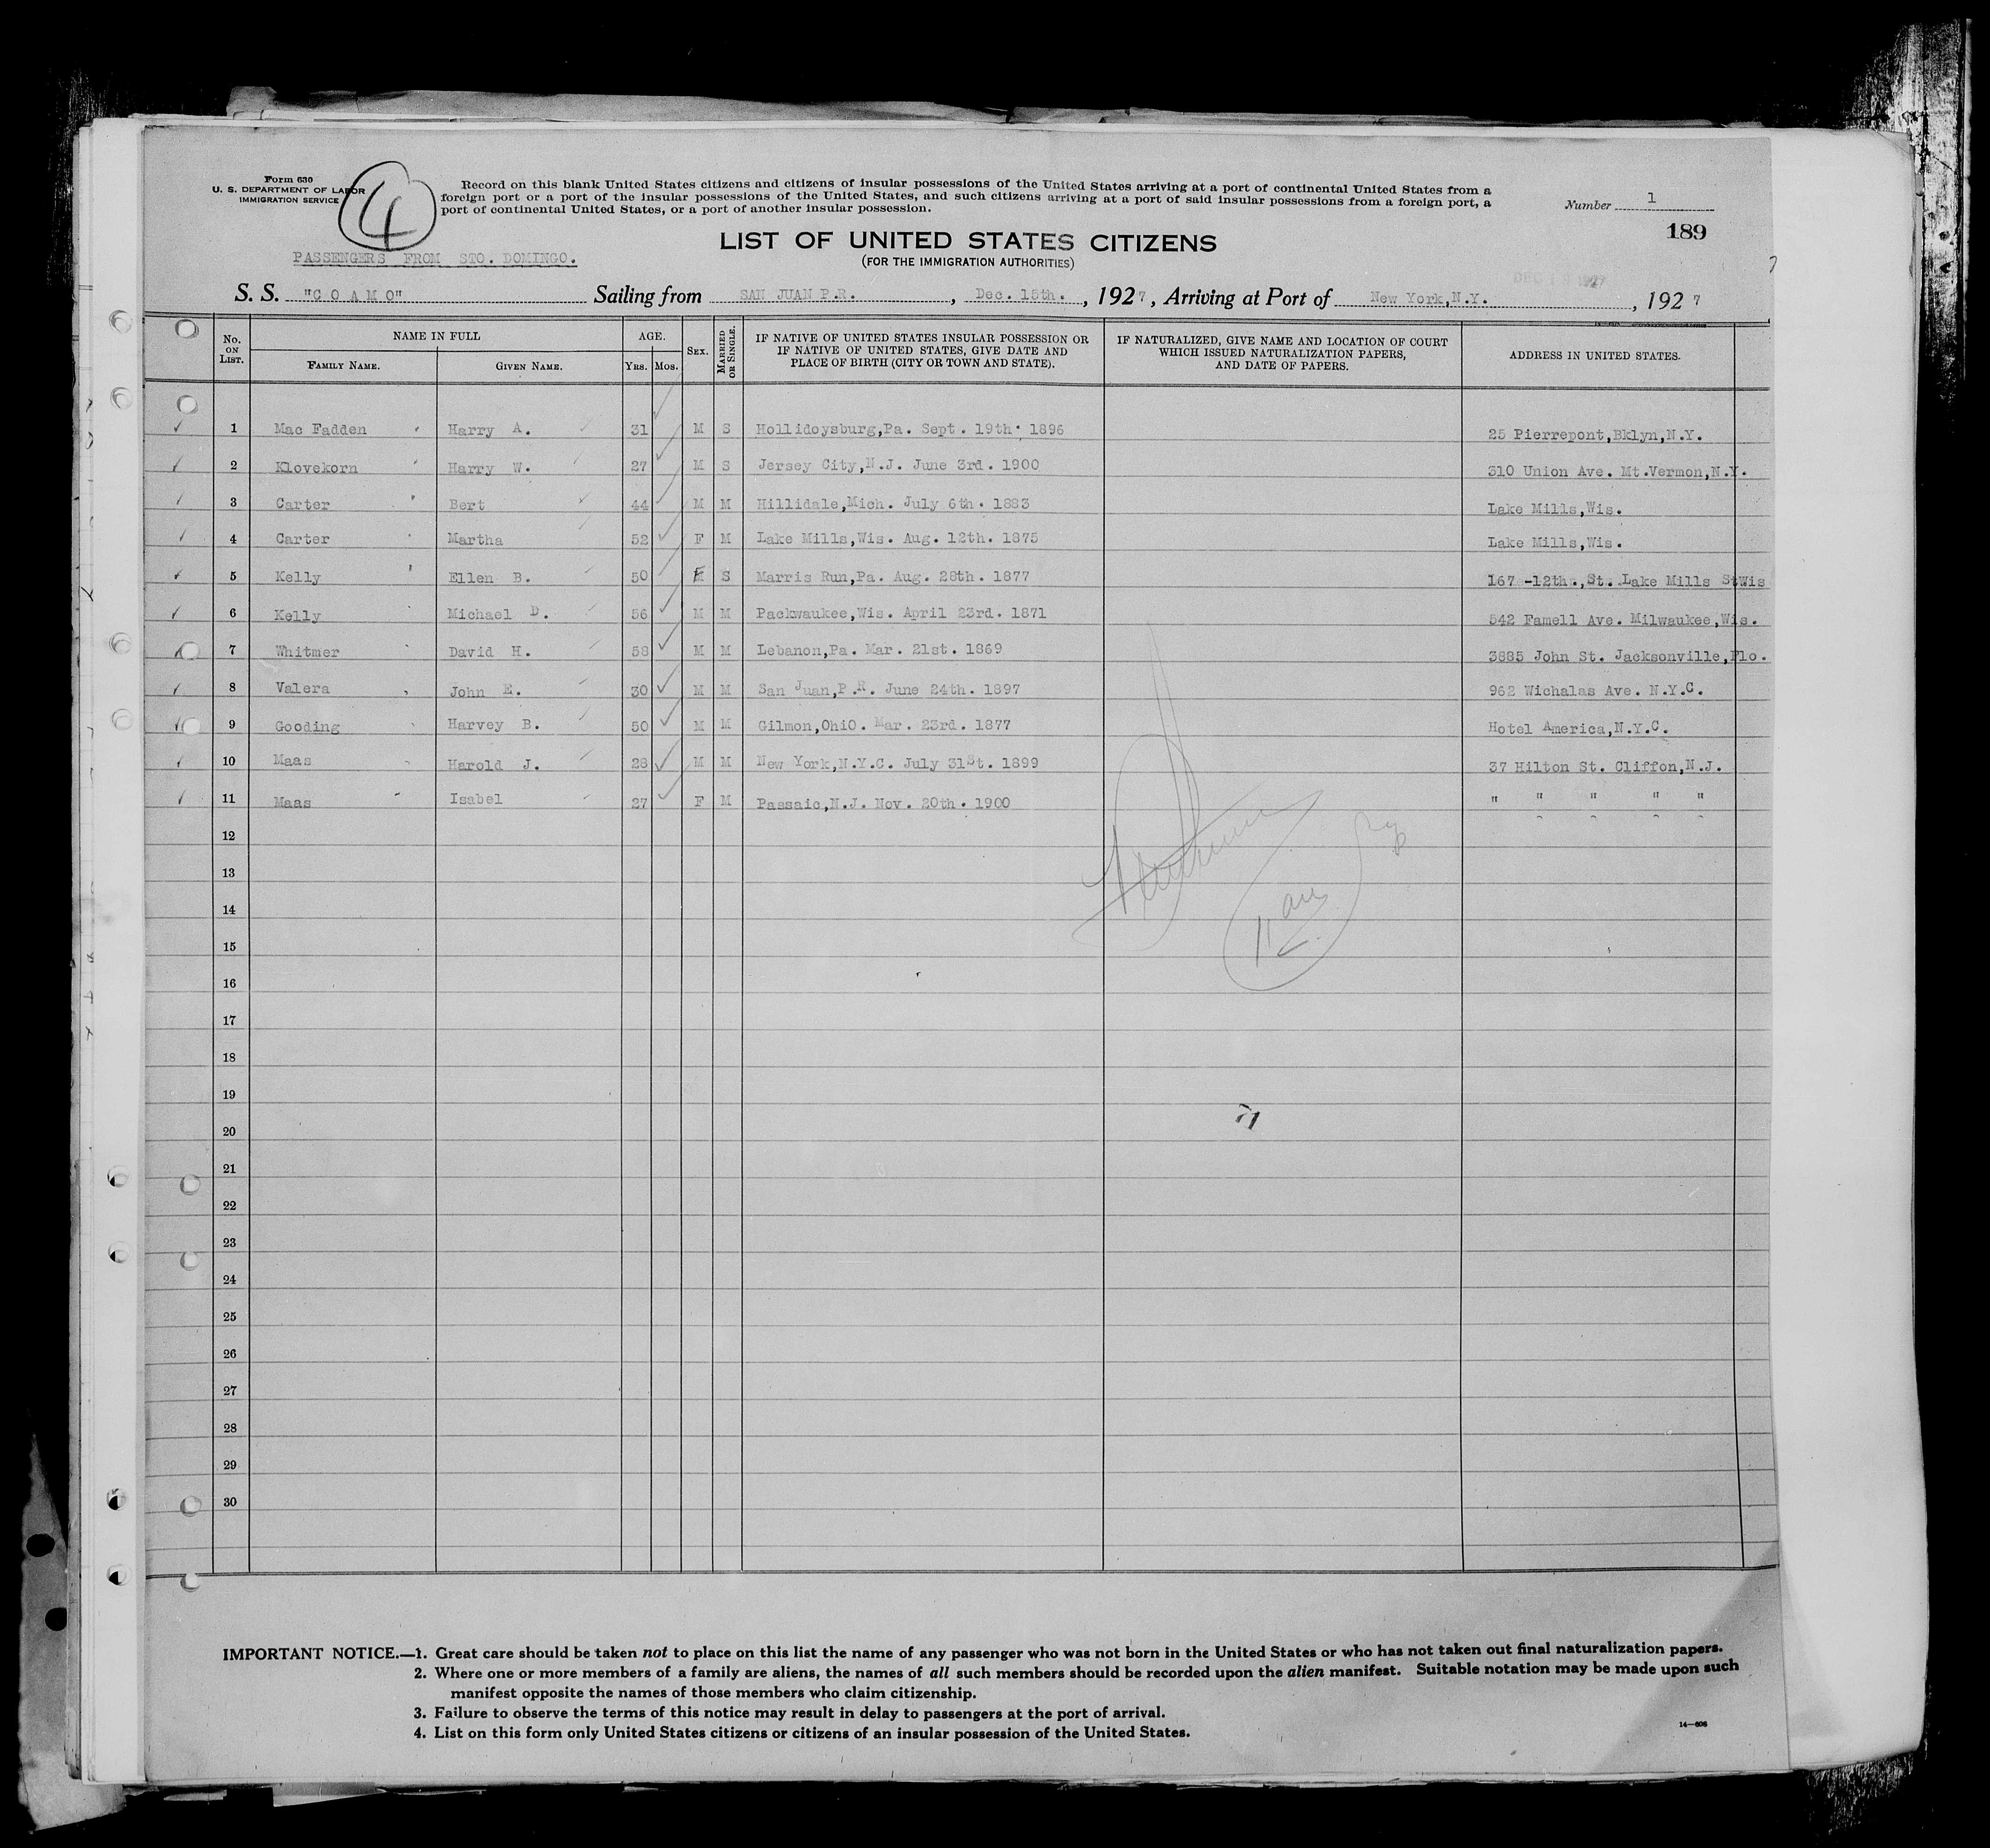 Form 630
U. S. DEPARTMENT OF LABOR
IMMIGRATION SERVICE
4
Record on this blank United States citizens and citizens of insular possessions of the United States arriving at a port of continental United States from a
foreign port or a port of the insular possessions of the United States, and such citizens arriving at a port of said insular possessions from a foreign port, a
port of continental United States, or a port of another insular possession.
Number 1
189
LIST OF UNITED STATES CITIZENS
(FOR THE IMMIGRATION AUTHORITIES)
PASSENGERS FROM STO. DOMINGO.
S. S. "C O A M O" Sailing from SAN JUAN P.R. , Dec. 15th. , 1927 , Arriving at Port of New York,N.Y. , 1927
No. ON LIST. NAME IN FULL FAMILY NAME. GIVEN NAME. AGE. YRS. MOS. SEX. MARRIED OR SINGLE. IF NATIVE OF UNITED STATES INSULAR POSSESSION OR IF NATIVE OF UNITED STATES, GIVE DATE AND PLACE OF BIRTH (CITY OR TOWN AND STATE). IF NATURALIZED, GIVE NAME AND LOCATION OF COURT WHICH ISSUED NATURALIZATION PAPERS, AND DATE OF PAPERS. ADDRESS IN UNITED STATES.
1 Mac Fadden Harry A. 31 M S Hollidoysburg,Pa. Sept. 19th. 1896 25 Pierrepont,Bklyn,N.Y.
2 Klovekorn Harry W. 27 M S Jersey City,N.J. June 3rd. 1900 310 Union Ave. Mt.Vermon,N.Y.
3 Carter Bert 44 M M Hillidale,Mich. July 6th. 1883 Lake Mills,Wis.
4 Carter Martha 52 F M Lake Mills,Wis. Aug. 12th. 1875 Lake Mills,Wis.
5 Kelly Ellen B. 50 F S Marris Run,Pa. Aug. 28th. 1877 167 -12th.,St. Lake Mills StWis
6 Kelly Michael D. 56 M M Packwaukee,Wis. April 23rd. 1871 542 Famell Ave. Milwaukee,Wis.
7 Whitmer David H. 58 M M Lebanon,Pa. Mar. 21st. 1869 3885 John St. Jacksonville,Flo.
8 Valera John E. 30 M M San Juan,P.R. June 24th. 1897 962 Wichalas Ave. N.Y.C.
9 Gooding Harvey B. 50 M M Gilmon,OhiO. Mar. 23rd. 1877 Hotel America,N.Y.C.
10 Maas Harold J. 28 M M New York,N.Y.C. July 31St. 1899 37 Hilton St. Cliffon,N.J.
11 Maas Isabel 27 F M Passaic,N.J. Nov. 20th. 1900 " " " " "
12
13
14
15
16
17
18
19
20
21
22
23
24
25
26
27
28
29
30
IMPORTANT NOTICE.—1. Great care should be taken not to place on this list the name of any passenger who was not born in the United States or who has not taken out final naturalization papers.
2. Where one or more members of a family are aliens, the names of all such members should be recorded upon the alien manifest. Suitable notation may be made upon such
manifest opposite the names of those members who claim citizenship.
3. Failure to observe the terms of this notice may result in delay to passengers at the port of arrival.
4. List on this form only United States citizens or citizens of an insular possession of the United States.
14—606